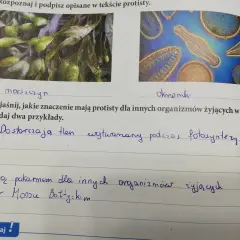 ozpoznaj i podpisz opisane w tekście protisty.
morszczyn okrzemki
jaśnij, jakie znaczenie mają protisty dla innych organizmów żyjących w
daj dwa przykłady.
Dostarczają tlen wytwarzany podczas fotosyntezy
są pokarmem dla innych organizmów żyjących
w Morzu Bałtyckim
aj!